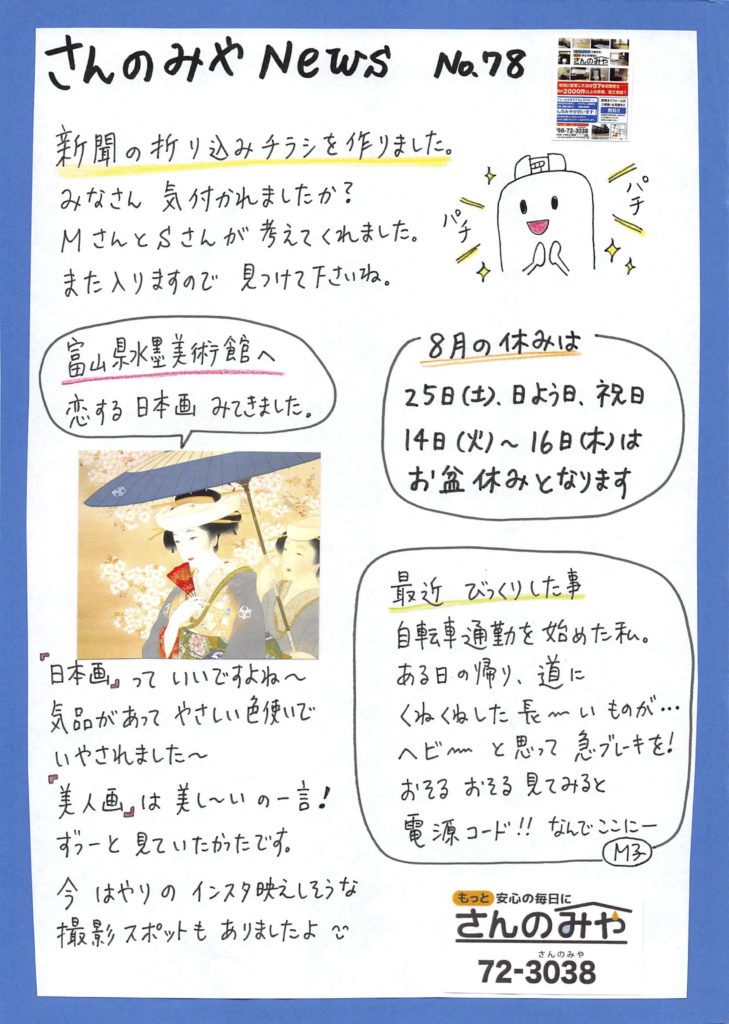 さんのみや News No.78
さんのみや
新聞の折り込みチラシを作りました。
みなさん 気付かれましたか?
MさんとSさんが考えてくれました。
また入りますので 見つけて下さいね。
パチ
パチ
富山県水墨美術館へ
恋する日本画 みてきました。
8月の休みは
25日(土)、日よう日、祝日
14日(火)〜16日(木)は
お盆休みとなります
『日本画』っていいですよね〜
気品があって やさしい色使いで
いやされました〜
『美人画』は美し〜いの一言!
ずぅーと見ていたかったです。
今 はやりの インスタ映えしそうな
撮影スポットも ありましたよ
最近 びっくりした事
自転車通勤を始めた私。
ある日の帰り、道に
くねくねした長〜いものが…
ヘビ〜 と思って 急ブレーキを!
おそる おそる 見てみると
電源コード!! なんでここにー
M子
もっと 安心の毎日に
さんのみや
さんのみや
72-3038